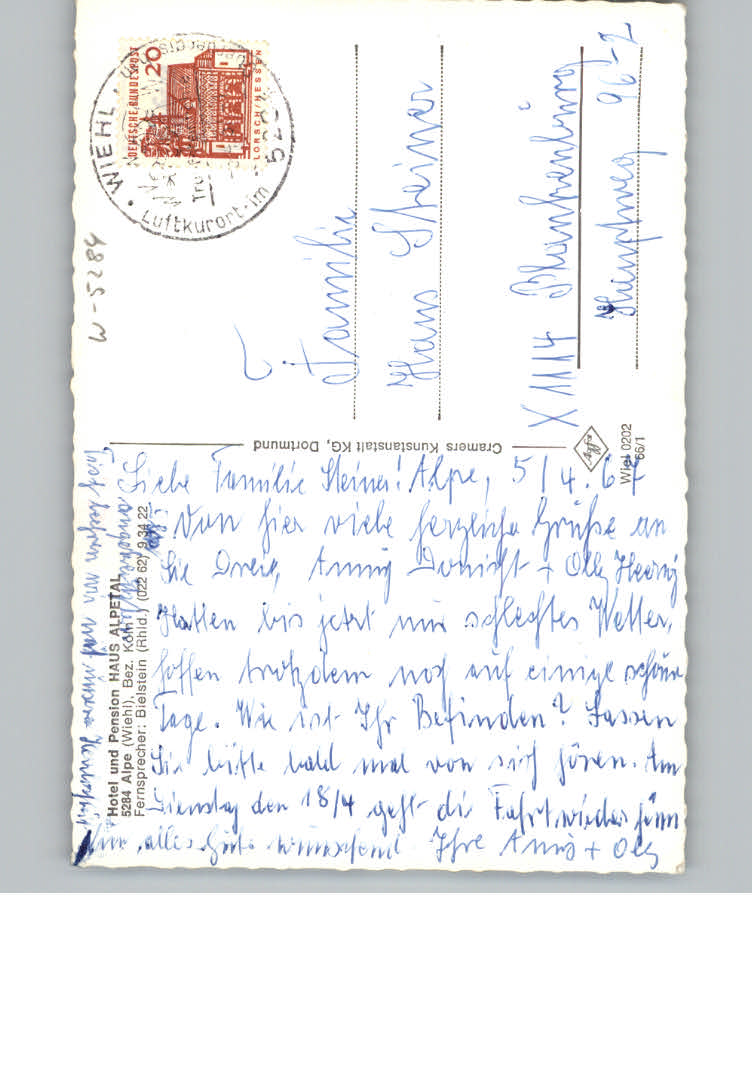 Liebe Familie Steiner! Alpe, 5/4.67
Von hier viele herzliche Grüße an
Sie Drei,
Hatten bis jetzt nur schlechtes Wetter,
hoffen trotzdem noch auf einige schöne
Tage. Wie ist Ihr Befinden? Lassen
Sie bitte bald mal von sich hören. Am
Dienstag den 18/4 geht die Fahrt wieder heim
alles Gute wünschend Ihre
Hotel und Pension HAUS ALPETAL
5284 Alpe (Wiehl), Bez. Köln
Fernsprecher: Bielstein (Rhld.) (022 62) 9 34 22
Cramers Kunstanstalt KG, Dortmund
Wiel 0202
66/1
W-5284
DEUTSCHE BUNDESPOST
20
LORSCH/HESSEN
WIEHL
Luftkurort im
Familie
Hans Steiner
X 1114 Blankenburg
96-2